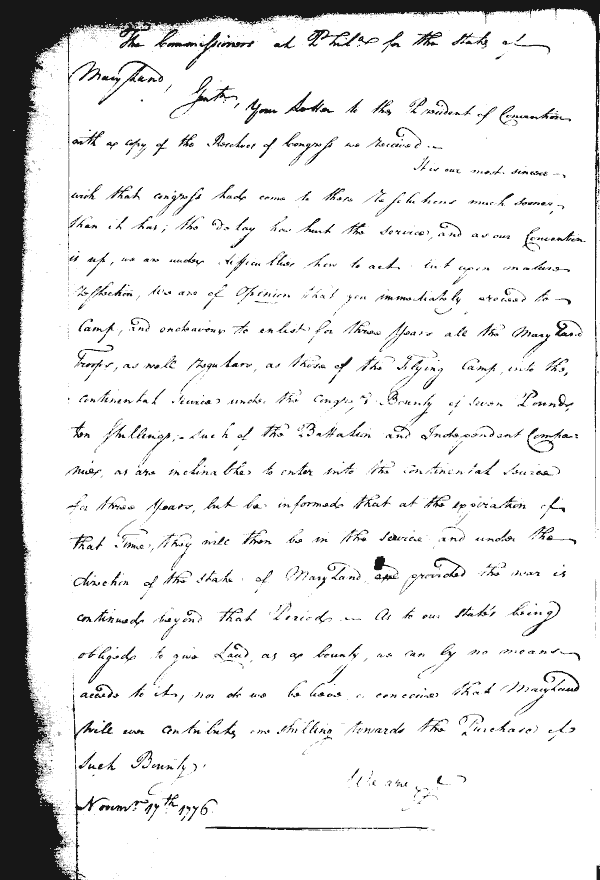 The Commissioners at Phila. for the State of
Maryland,
Gentn., Your Letter to the President of Convention
with a copy of the Resolves of Congress we received.
It is our most sincere
wish that congress had come to these Resolutions much sooner,
than it has; the delay has hurt the service, and as our Convention
is up, we are under difficulties how to act. but upon mature
reflection, We are of Opinion that you immediately proceed to
Camp, and endeavour to enlist for three Years all the Maryland
Troops, as well regulars, as those of the Flying Camp, into the
continental service under the congress Bounty of seven Pounds
ten shillings. such of the Battalion and Independent Compa-
nies, as are inclinable to enter into the continental service
for three Years, but be informed that at the expiration of
that Time, they will then be in the service and under the
direction of the State of Maryland provided the war is
continued beyond that Period. As to our State's being
obliged to give Land, as a bounty, we can by no means
accede to it, nor do we believe or conceive that Maryland
will ever contribute one shilling towards the Purchase of
such Bounty.
We are &c
Novemr. 17th 1776.